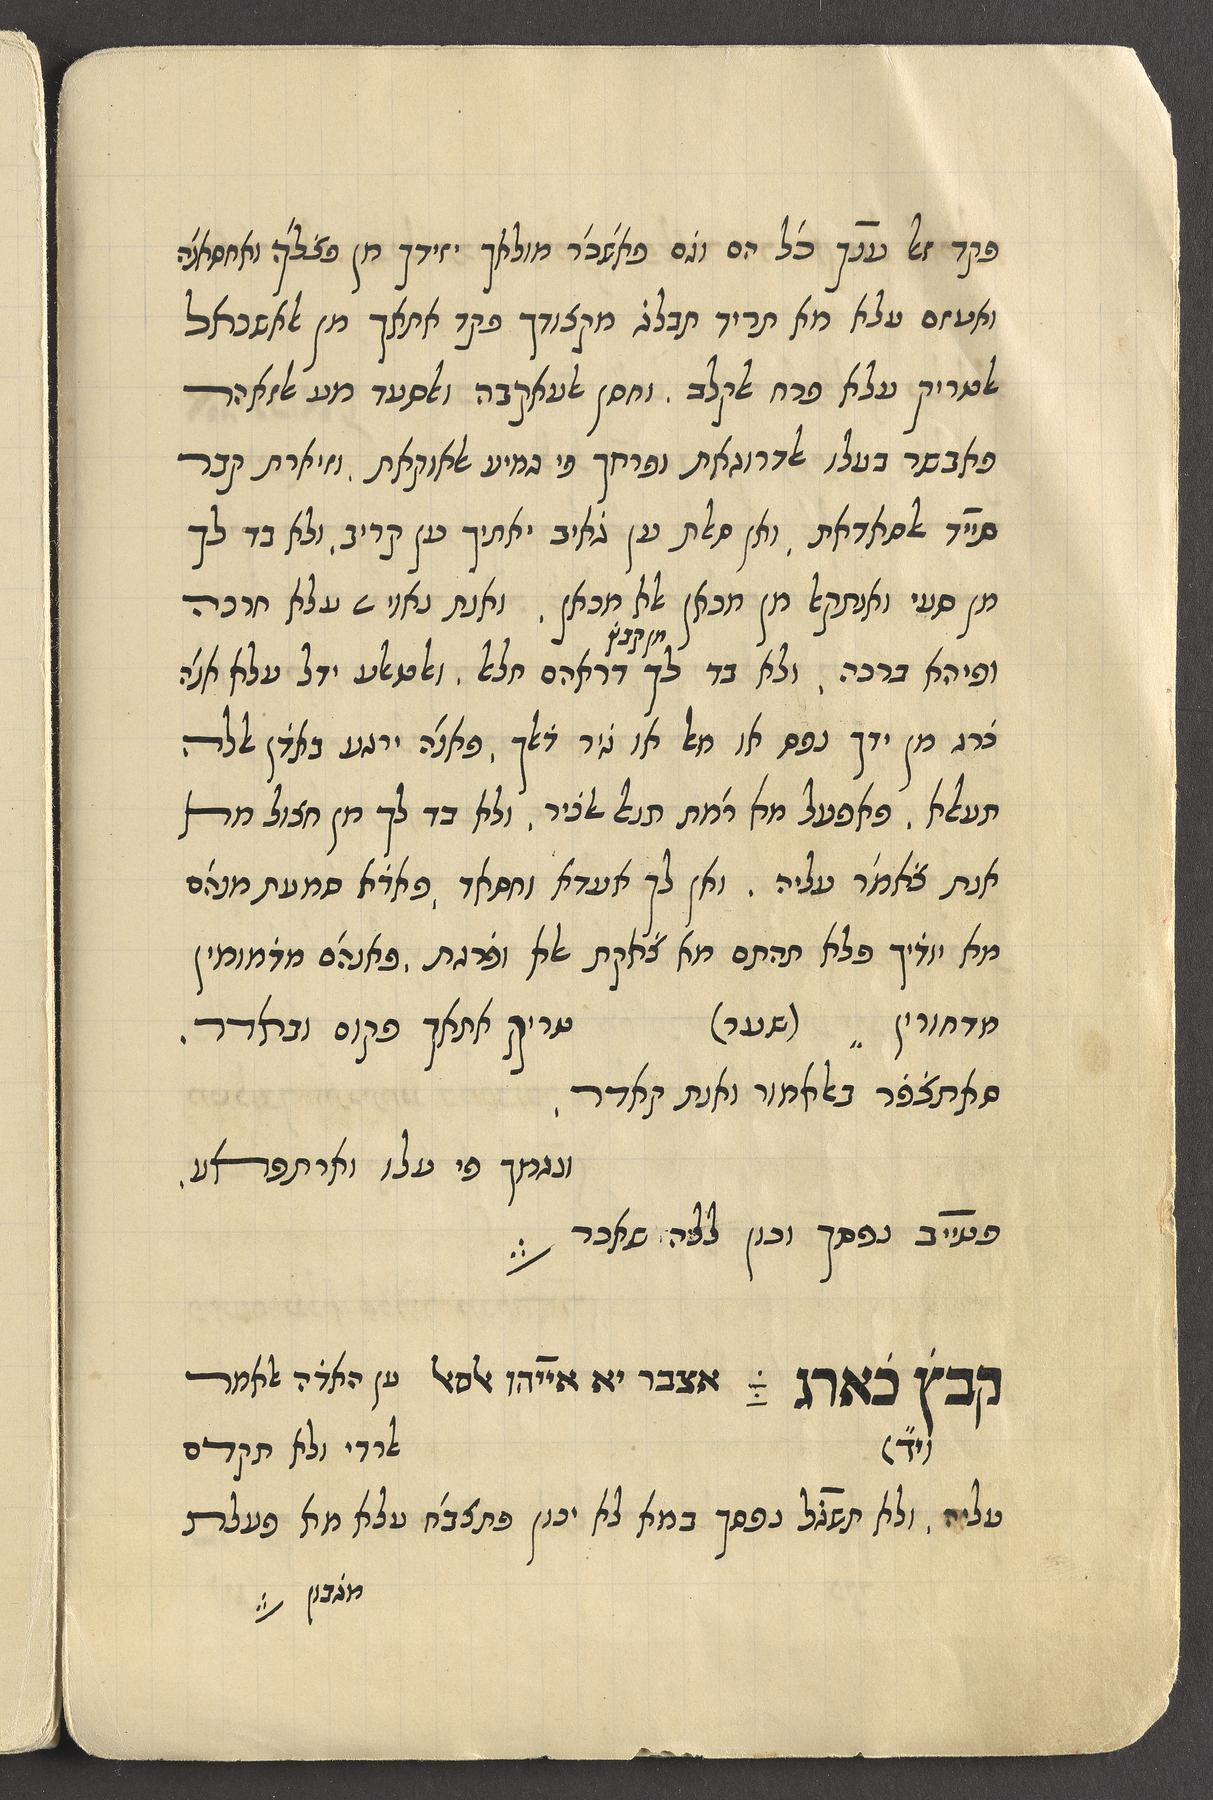 פקד זאל ענّך כׄל הם וגׄם פאשׁכׄר מולאך יזידך מן פצׄלה ואחסאנה
ואעזם עלא מא תריד תבלגׄ מקצודך פקד אתאך מן אלאשכאל
אלטריק עלא פרח אלקלב . וחסן אלעאקבה ואלסעד מע אלזאהר
פאבשר בעלו אלדרוגאת ופרחך פי גמיע אלאוקאת . וזיארת קבר
סיّיד אלסאדאת . ואן סאלת ען גׄאיב יאתיך ען קריב . ולא בד לך
מן סעי ואנתקאל מן מכאן אלא מכאן . ואנת נאוי עלא חרכה
מן קבץׄ
ופיהא ברכה . ולא בד לך דראהם חלאל . ואלטאלע ידל עלא אנה
כׄרג מן ידך נפס או מאל או גׄיר דׄאלך . פאנה ירגע באדׄן אללה
תעאלא . פאפעל מא רׄמת תנאל אלכׄיר . ולא בד לך מן חצול מא
אנת צׄאמׄר עליה . ואן לך אעדא וחסאד . פאדׄא סמעת מנהם
מא יודׄיך פלא תהתם מא צׄאקת אלא ופׄרגת . פאנהׄם מדׄמומין
מדחורין ״ (שער) טריק אתאך פקום ובאדר .
סאתצׄפׄר באלאמור ואנת קאדר .
ונגמך פי עלו וארתפאע .
פטיّיב נפסך וכון ללה שאכר
קבץׄ כׄארג אצבר יא איّיהו אלסאל ען האדׄה אלאמר
(י״ד) אלרדי ולא תקדם
עליה . ולא תשגّׄל נפסך במא לא יכון פתצבׄח עלא מא פעלת
מגׄבון